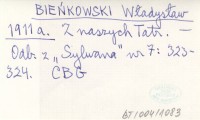 BIEŃKOWSKI Władysław
1911 a. Z naszych Tatr. —
Odb. z „Sylwana" nr 7: 323-
324. CBG
BT/004/1083